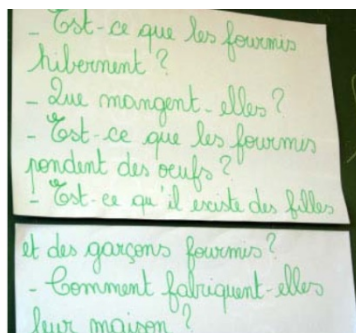 - Est-ce que les fourmis
hibernent ?
- Que mangent-elles ?
- Est-ce que les fourmis
pondent des oeufs ?
- Est-ce qu'il existe des filles
et des garçons fourmis ?
- Comment fabriquent-elles
leur maison ?